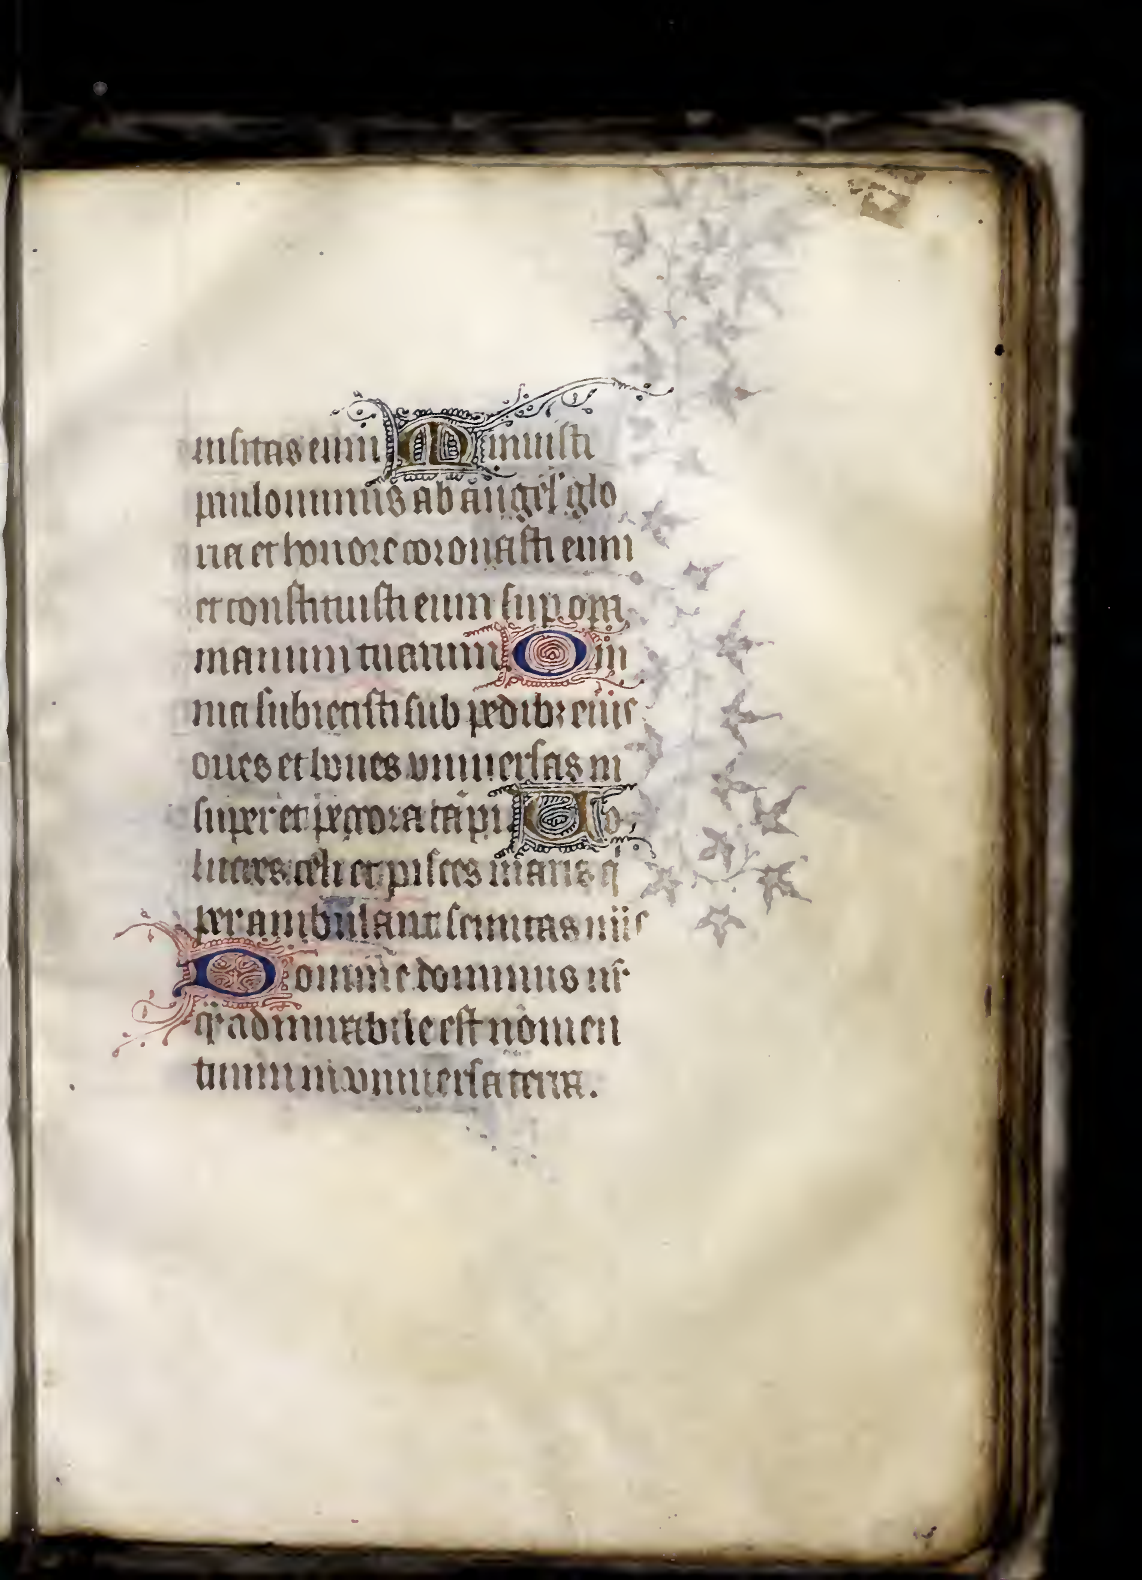 uisitas eum Minuisti
paulominus ab angel' glo
ria et honore coronasti eum
et constituisti eum sup opa
manuum tuarum Om
nia subiecisti sub pedib; eius
oues et boues vniuersas in
super et pecora campi Uo
lucres celi et pisces maris q̄
perambulant semitas mīs
Domine dominus nr̄
q̄ admirabile est nomen
tuum in vniuersa terra.